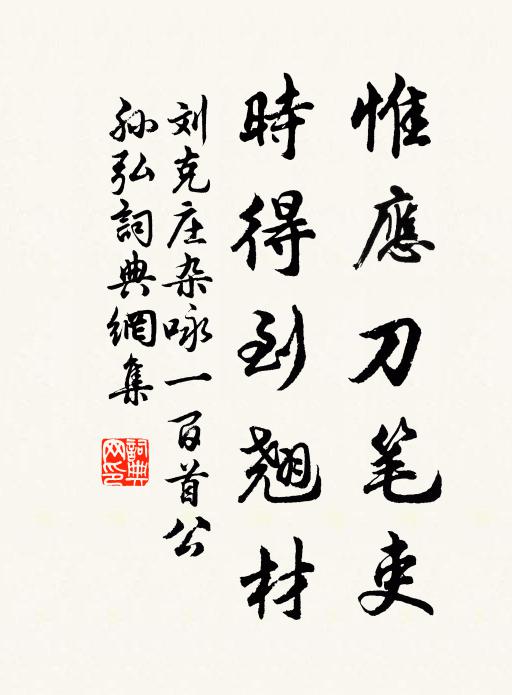 惟應刀笔吏
時得到翘材
刘克庄杂咏一百首公
孙弘詞典網集
詞典网印